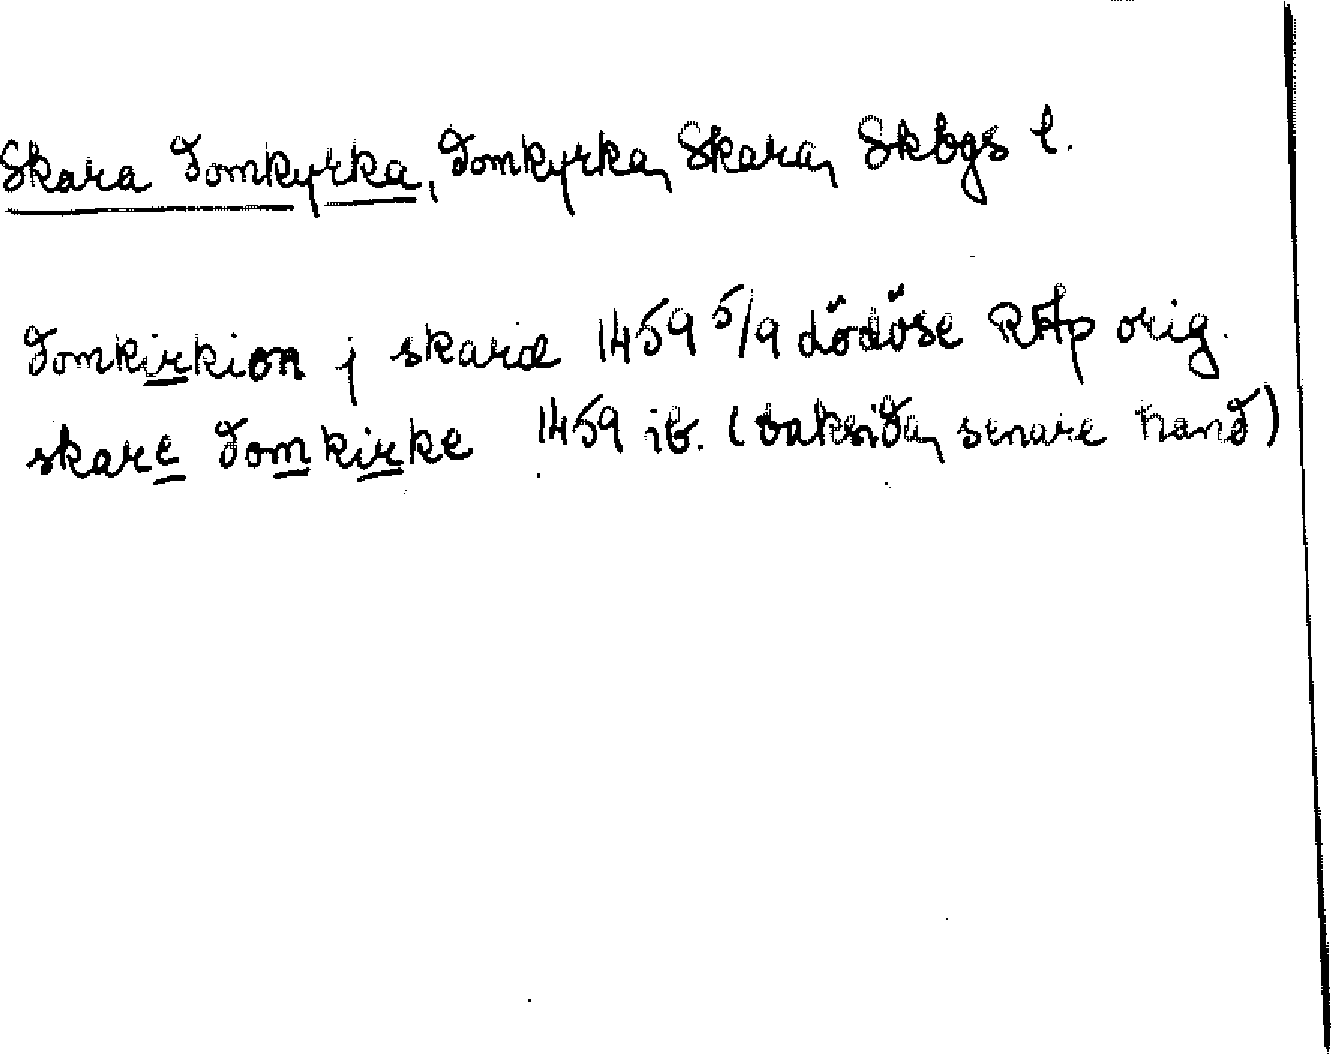 Skara domkyrka, domkyrka, Skara, Skbgs l.
domkirkion j skaræ 1459 5/9 Lödöse RAp orig.
skare domkirke 1459 ib. (baksida, senare hand)